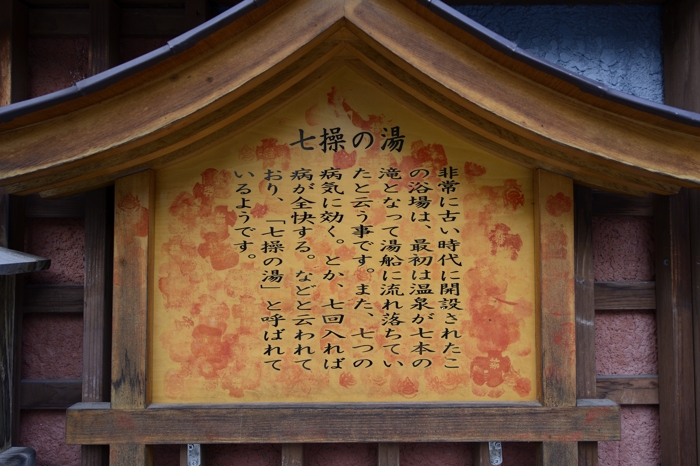 七操の湯
非常に古い時代に開設されたこ
の浴場は、最初は温泉が七本の
滝となって湯船に流れ落ちてい
たと云う事です。また、七つの
病気に効く。とか、七回入れば
病が全快する。などと云われて
おり、「七操の湯」と呼ばれて
いるようです。